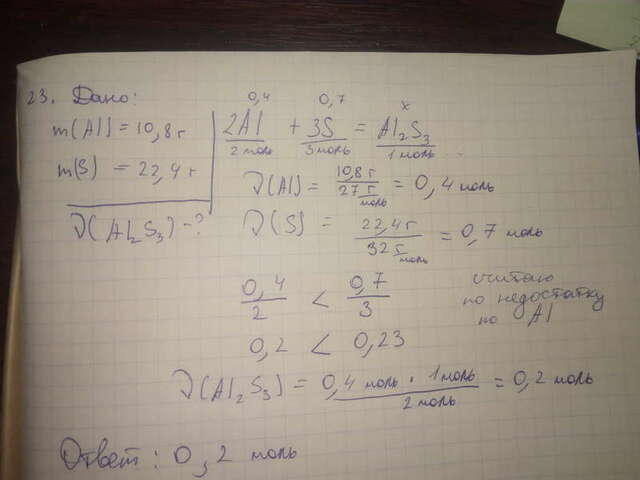 23. Дано:
m(Al) = 10,8 г
m(S) = 22,4 г
ν(Al₂S₃) - ?
0,4 0,7 x
2Al + 3S = Al₂S₃
2 моль 3 моль 1 моль
ν(Al) = 10,8 г / 27 г/моль = 0,4 моль
ν(S) = 22,4 г / 32 г/моль = 0,7 моль
0,4/2 < 0,7/3
0,2 < 0,23
считаю
по недостатку
по Al
ν(Al₂S₃) = 0,4 моль · 1 моль / 2 моль = 0,2 моль
Ответ: 0,2 моль